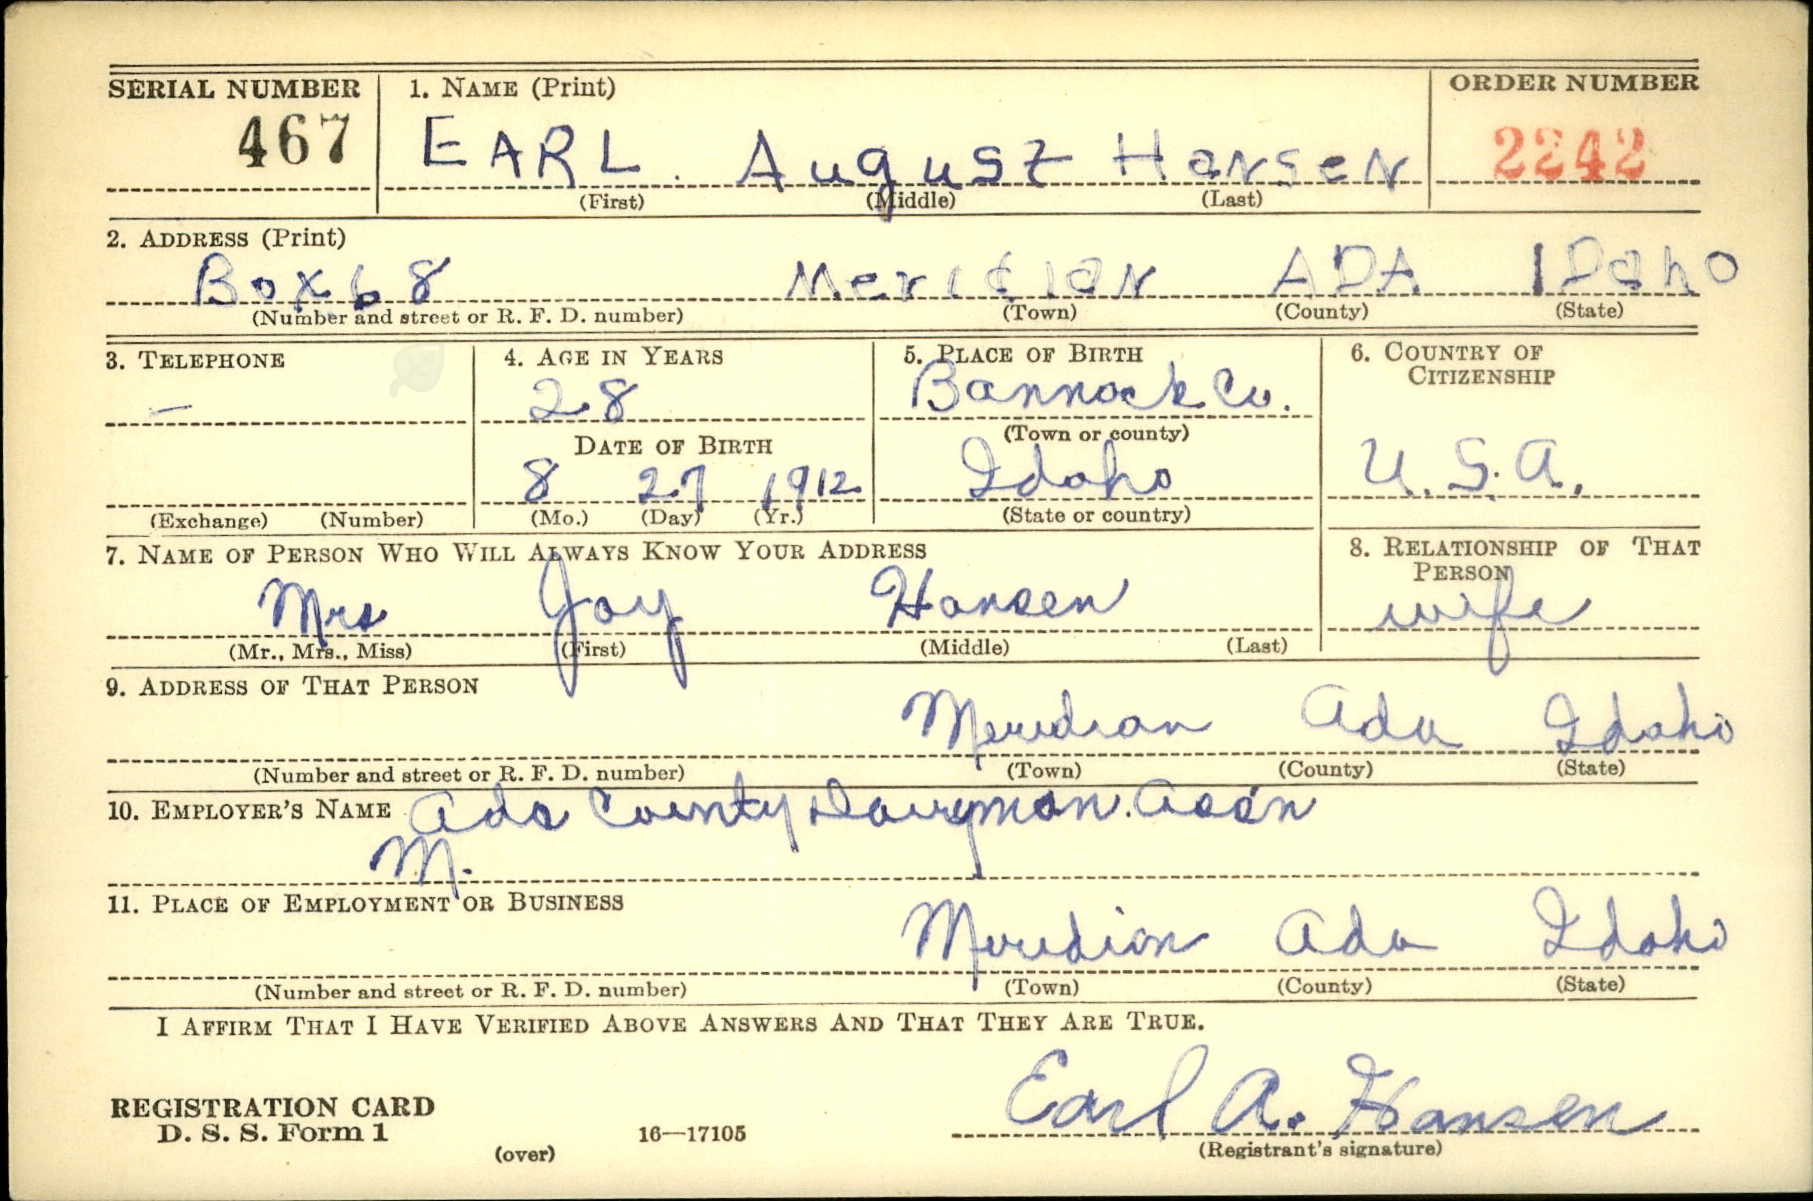 SERIAL NUMBER 1. NAME (Print) ORDER NUMBER
467 EARL August Hansen 2242
(First) (Middle) (Last)
2. ADDRESS (Print)
Box 68 Meridian ADA IDaho
(Number and street or R. F. D. number) (Town) (County) (State)
3. TELEPHONE 4. AGE IN YEARS 5. PLACE OF BIRTH 6. COUNTRY OF CITIZENSHIP
— 28 Bannock Co.
(Town or county)
DATE OF BIRTH
8 27 1912 Idaho U.S.A.
(Exchange) (Number) (Mo.) (Day) (Yr.) (State or country)
7. NAME OF PERSON WHO WILL ALWAYS KNOW YOUR ADDRESS 8. RELATIONSHIP OF THAT PERSON
Mrs Joy Hansen wife
(Mr., Mrs., Miss) (First) (Middle) (Last)
9. ADDRESS OF THAT PERSON
Meridian Ada Idaho
(Number and street or R. F. D. number) (Town) (County) (State)
10. EMPLOYER'S NAME Ada County Dairyman. Assn
M.
11. PLACE OF EMPLOYMENT OR BUSINESS
Meridian Ada Idaho
(Number and street or R. F. D. number) (Town) (County) (State)
I AFFIRM THAT I HAVE VERIFIED ABOVE ANSWERS AND THAT THEY ARE TRUE.
Earl A. Hansen
REGISTRATION CARD
D. S. S. Form 1 16—17105 (Registrant's signature)
(over)